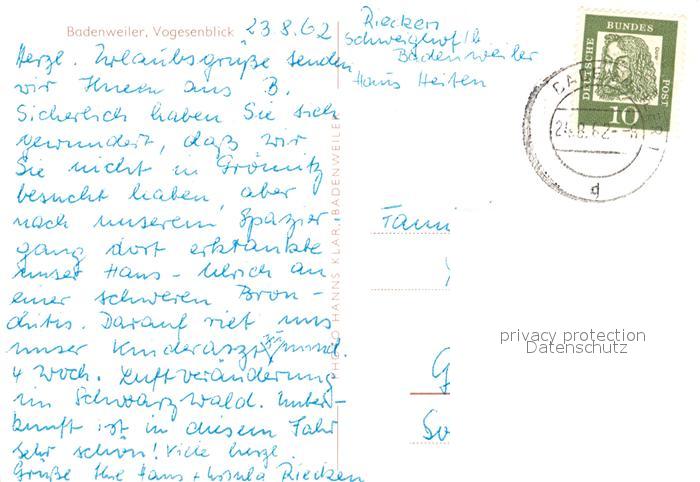 Badenweiler, Vogesenblick
23.8.62
Riecken
Schweighof/b
Badenweiler
Haus Heiten
Herzl. Urlaubsgrüße senden
wir Ihnen aus B.
Sicherlich haben Sie sich
gewundert, daß wir
Sie nicht in Grömitz
besucht haben, aber
nach unserem Spazier-
gang dort erkrankte
unser Hans-Ulrich an
einer schweren Bron-
chitis. Darauf riet uns
unser Kinderarzt
4 Woch. Luftveränderung
im Schwarzwald. Unter-
kunft ist in diesem Jahr
sehr schön! Viele herzl.
Grüße Ihre Hans + Ursula Riecken
PHOTO HANNS KLAR, BADENWEILER
DEUTSCHE
BUNDES
POST
10
d
Fami
G
So
privacy protection
Datenschutz